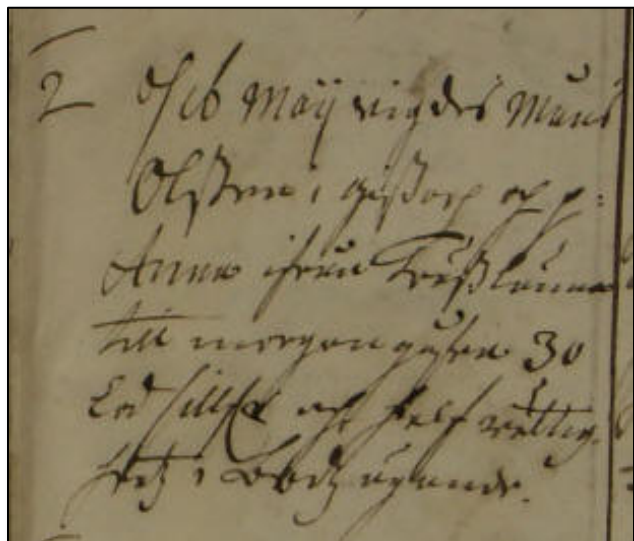 2 d/ 16 Maÿ wigdes Måns
Olßon i gißarp och p:
Anna ifrån Trußlanna
till morgongåfwa 30
Lod sillfr och half rättig-
hetz i Bootz ägande.